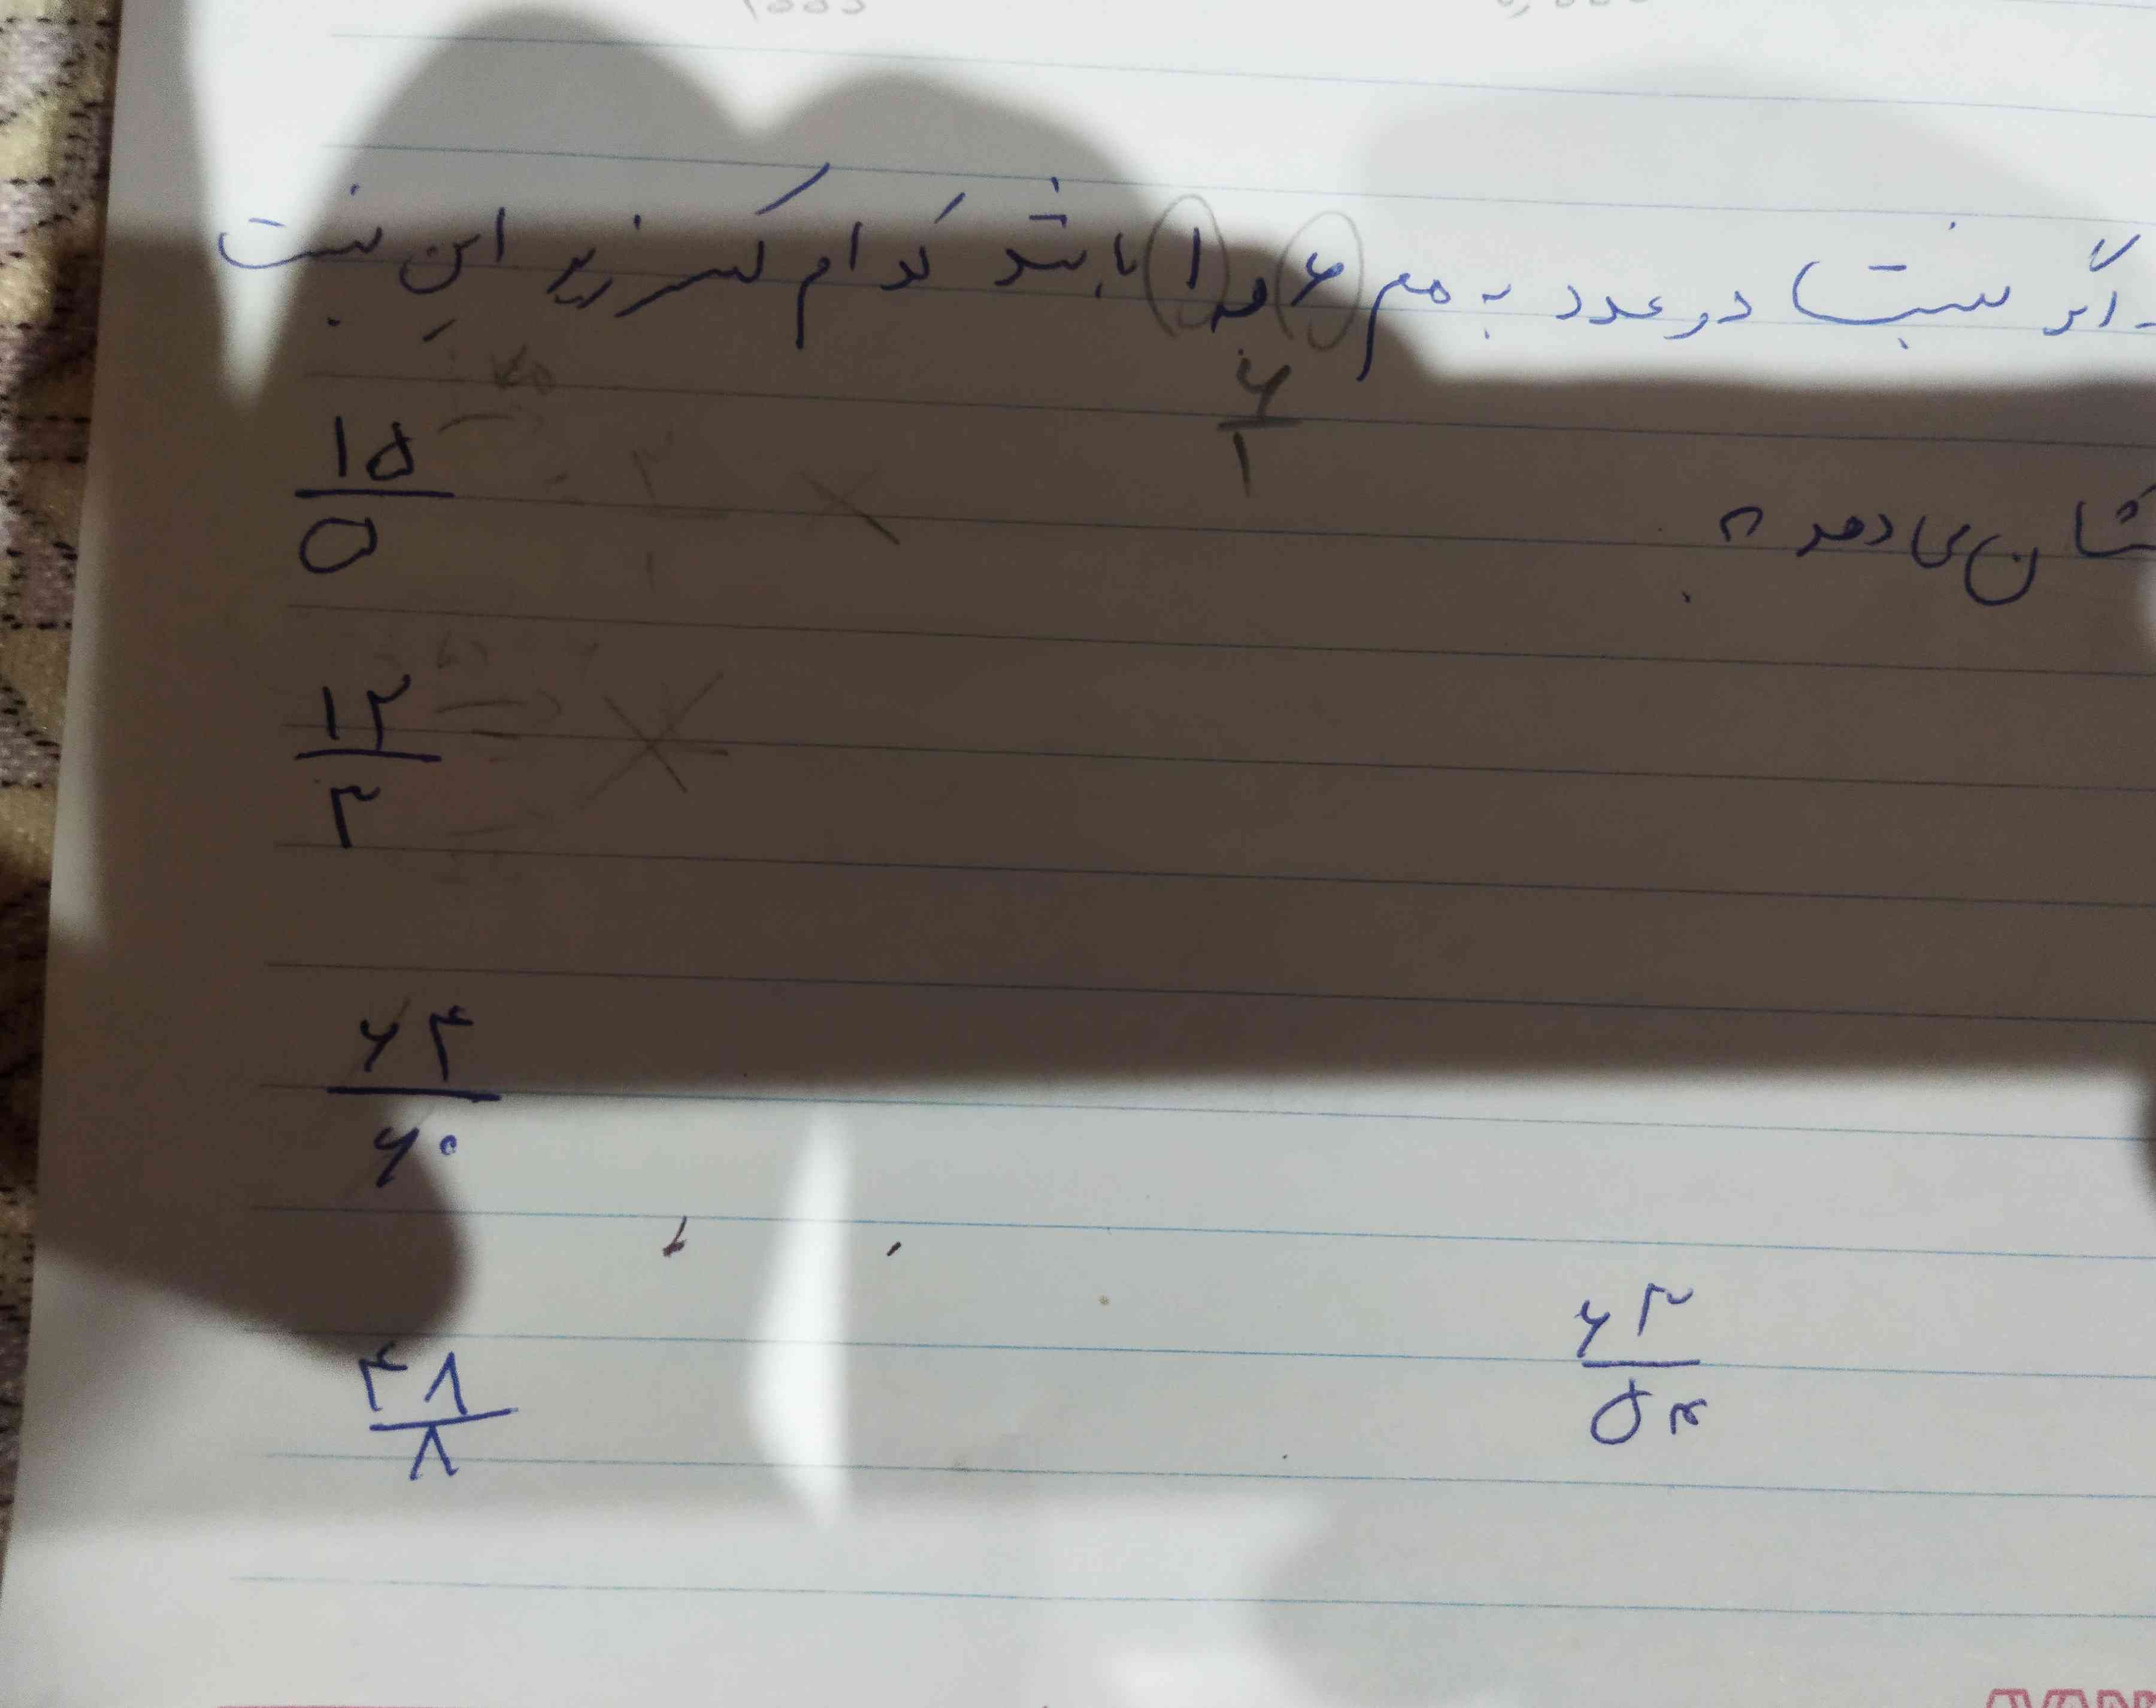 اگر نسبت دو عدد به هم ۶ به ۱ باشد کدام کسر زیر این نسبت
۶
۱
نشان می دهد؟
۱۵
۵
۱۲
۳
۶۴
۶۰
۶۳
۵۳
۴۸
۸